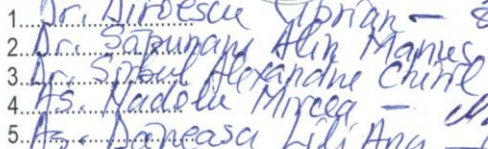 1. Dr. Dirvescu Ciprian —
2. Dr. Săpunaru Alin Marius
3. Dr. Sîrbu Alexandru Chiril
4. As. Nadolu Mircea —
5. As. Dăneasa Lili Ana —